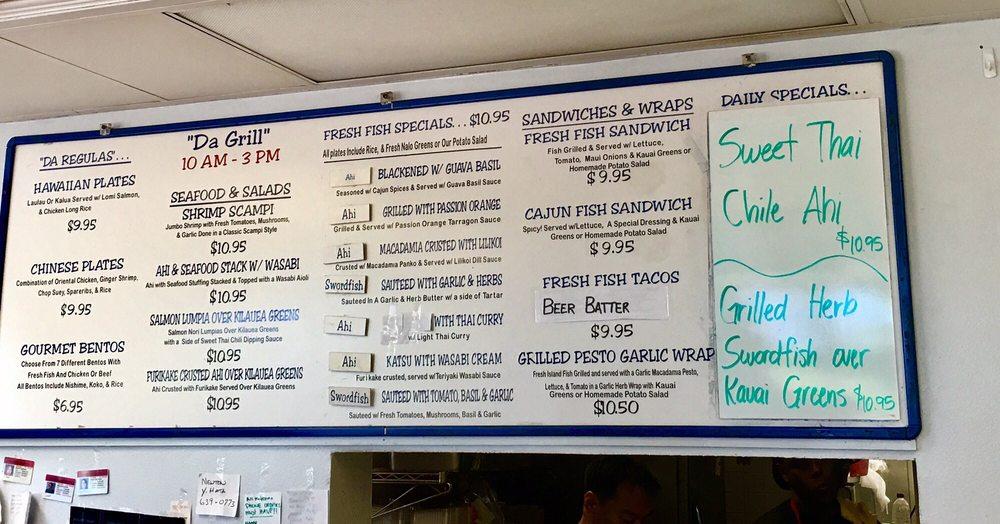 "DA REGULAS"...
HAWAIIAN PLATES
Laulau Or Kalua Served w/ Lomi Salmon,
& Chicken Long Rice
$9.95
CHINESE PLATES
Combination of Oriental Chicken, Ginger Shrimp,
Chop Suey, Spareribs, & Rice
$9.95
GOURMET BENTOS
Choose From 7 Different Bentos With
Fresh Fish And Chicken Or Beef
All Bentos Include Nishime, Koko, & Rice
$6.95
"Da Grill"
10 AM - 3 PM
SEAFOOD & SALADS
SHRIMP SCAMPI
Jumbo Shrimp with Fresh Tomatoes, Mushrooms,
& Garlic Done in a Classic Scampi Style
$10.95
AHI & SEAFOOD STACK W/ WASABI
Ahi with Seafood Stuffing Stacked & Topped with a Wasabi Aioli
$10.95
SALMON LUMPIA OVER KILAUEA GREENS
Salmon Nori Lumpias Over Kilauea Greens
with a Side of Sweet Thai Chili Dipping Sauce
$10.95
FURIKAKE CRUSTED AHI OVER KILAUEA GREENS
Ahi Crusted with Furikake Served Over Kilauea Greens
$10.95
FRESH FISH SPECIALS... $10.95
All plates Include Rice, & Fresh Nalo Greens or Our Potato Salad
Ahi BLACKENED W/ GUAVA BASIL
Seasoned w/ Cajun Spices & Served w/ Guava Basil Sauce
Ahi GRILLED WITH PASSION ORANGE
Grilled & Served w/ Passion Orange Tarragon Sauce
Ahi MACADAMIA CRUSTED WITH LILIKOI
Crusted w/ Macadamia Panko & Served w/ Lilikoi Dill Sauce
Swordfish SAUTEED WITH GARLIC & HERBS
Sauteed In A Garlic & Herb Butter w/ a side of Tartar
Ahi WITH THAI CURRY
w/ Light Thai Curry
Ahi KATSU WITH WASABI CREAM
Furikake crusted, served w/Teriyaki Wasabi Sauce
Swordfish SAUTEED WITH TOMATO, BASIL & GARLIC
Sauteed w/ Fresh Tomatoes, Mushrooms, Basil & Garlic
SANDWICHES & WRAPS
FRESH FISH SANDWICH
Fish Grilled & Served w/ Lettuce,
Tomato, Maui Onions & Kauai Greens or
Homemade Potato Salad
$9.95
CAJUN FISH SANDWICH
Spicy! Served w/Lettuce, A Special Dressing & Kauai
Greens or Homemade Potato Salad
$9.95
FRESH FISH TACOS
BEER BATTER
$9.95
GRILLED PESTO GARLIC WRAP
Fresh Island Fish Grilled and served with a Garlic Macadamia Pesto,
Lettuce, & Tomato in a Garlic Herb Wrap with Kauai
Greens or Homemade Potato Salad
$10.50
DAILY SPECIALS...
Sweet Thai
Chile Ahi
$10.95
Grilled Herb
Swordfish over
Kauai Greens $10.95
639-0773